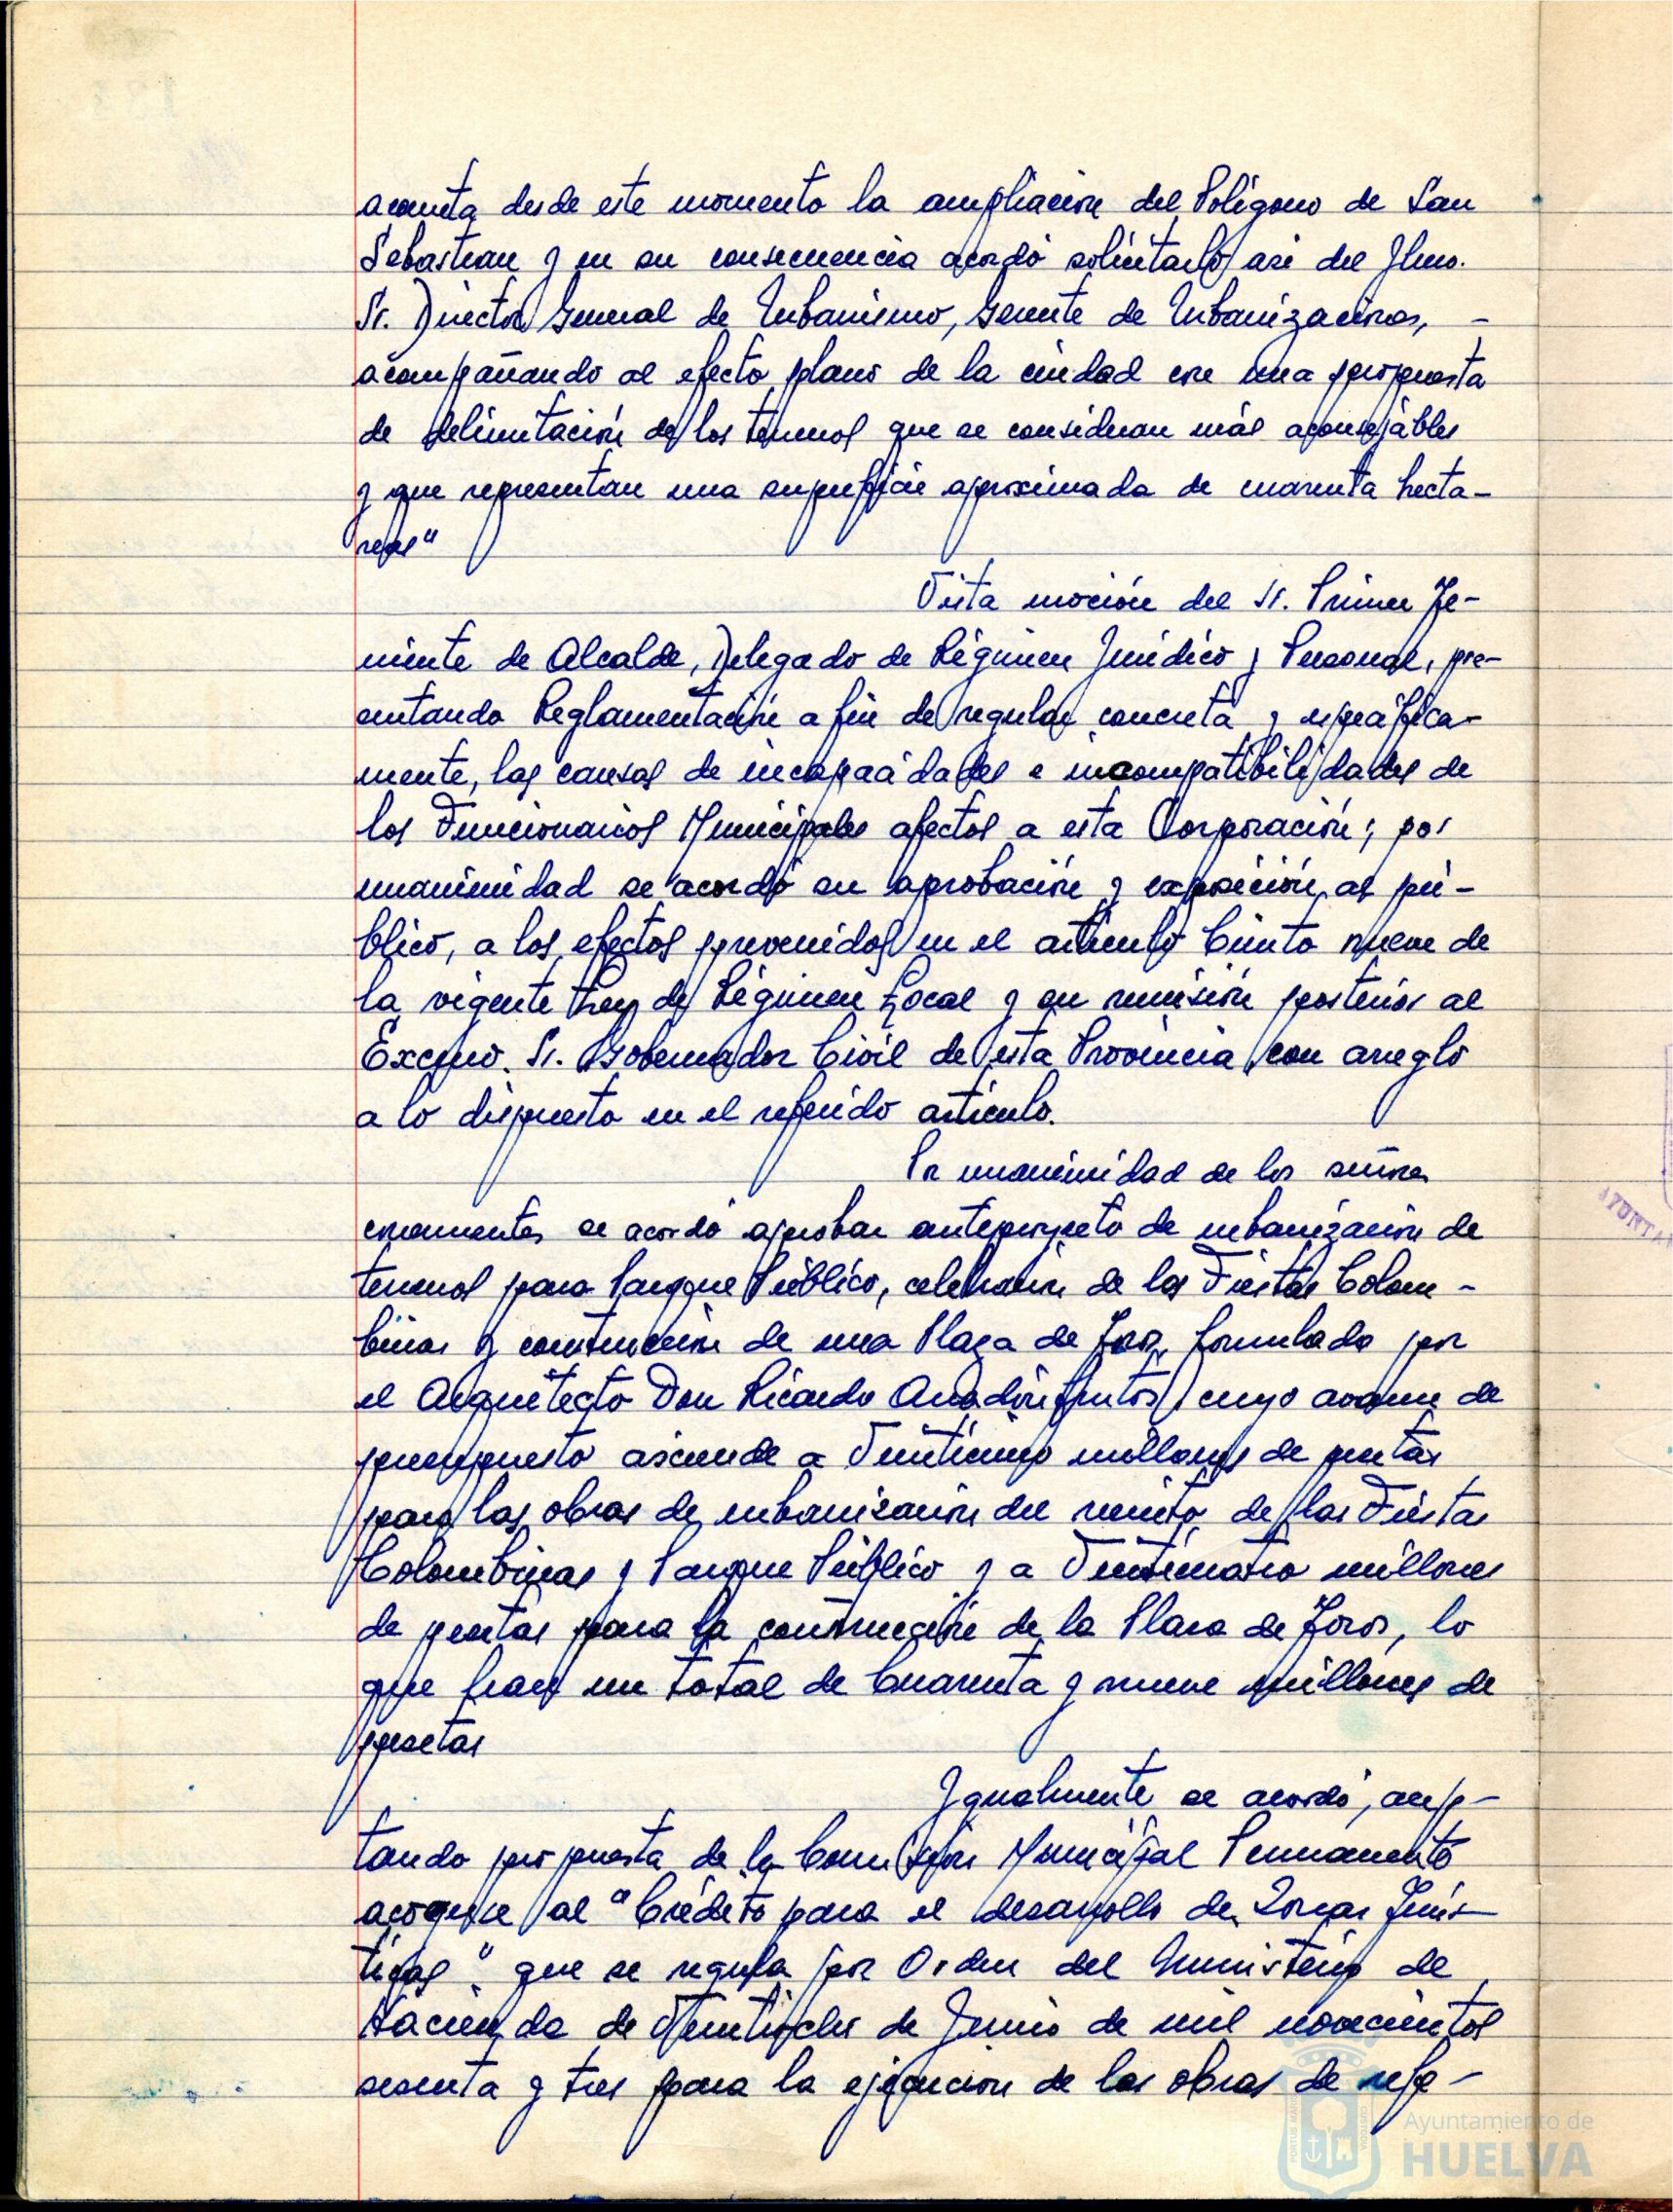 acometa desde este momento la ampliación del Polígono de San
Sebastian y en su consecuencia acordó solicitarlo asi del Ilmo.
Sr. Director General de Urbanismo, Gerente de Urbanizaciones, -
acompañando al efecto plano de la ciudad con una propuesta
de delimitación de los terrenos que se consideran más aconsejables
y que representan una superficie aproximada de cuarenta hecta-
reas"
Vista moción del Sr. Primer Te-
niente de Alcalde, Delegado de Régimen Jurídico y Personal, pre-
sentando Reglamentación a fin de regular concreta y específica-
mente, las causas de incapacidades e incompatibilidades de
los Funcionarios Municipales afectos a esta Corporación; por
unanimidad se acordó su aprobación y exposición al pú-
blico, a los efectos prevenidos en el artículo Ciento nueve de
la vigente Ley de Régimen Local y su remisión posterior al
Excmo. Sr. Gobernador Civil de esta Provincia con arreglo
a lo dispuesto en el referido artículo.
Por unanimidad de los señores
concurrentes se acordó aprobar anteproyecto de urbanización de
terrenos para Parque Público, celebración de las Fiestas Colom-
binas y construcción de una Plaza de Toros, formulado por
el Arquitecto Don Ricardo Anadón Frutos, cuyo avance de
presupuesto asciende a Veinticinco millones de pesetas
para las obras de urbanización del recinto de las Fiestas
Colombinas y Parque Público y a Veinticuatro millones
de pesetas para la construcción de la Plaza de Toros, lo
que hacen un total de Cuarenta y nueve millones de
pesetas
Igualmente se acordó, acep-
tando propuesta de la Comisión Municipal Permanente
acogerse al "Crédito para el desarrollo de Zonas Turís-
ticas" que se regula por Orden del Ministerio de
Hacienda de Veintiocho de Junio de mil novecientos
sesenta y tres para la ejecución de las obras de refe-
Ayuntamiento de
HUELVA